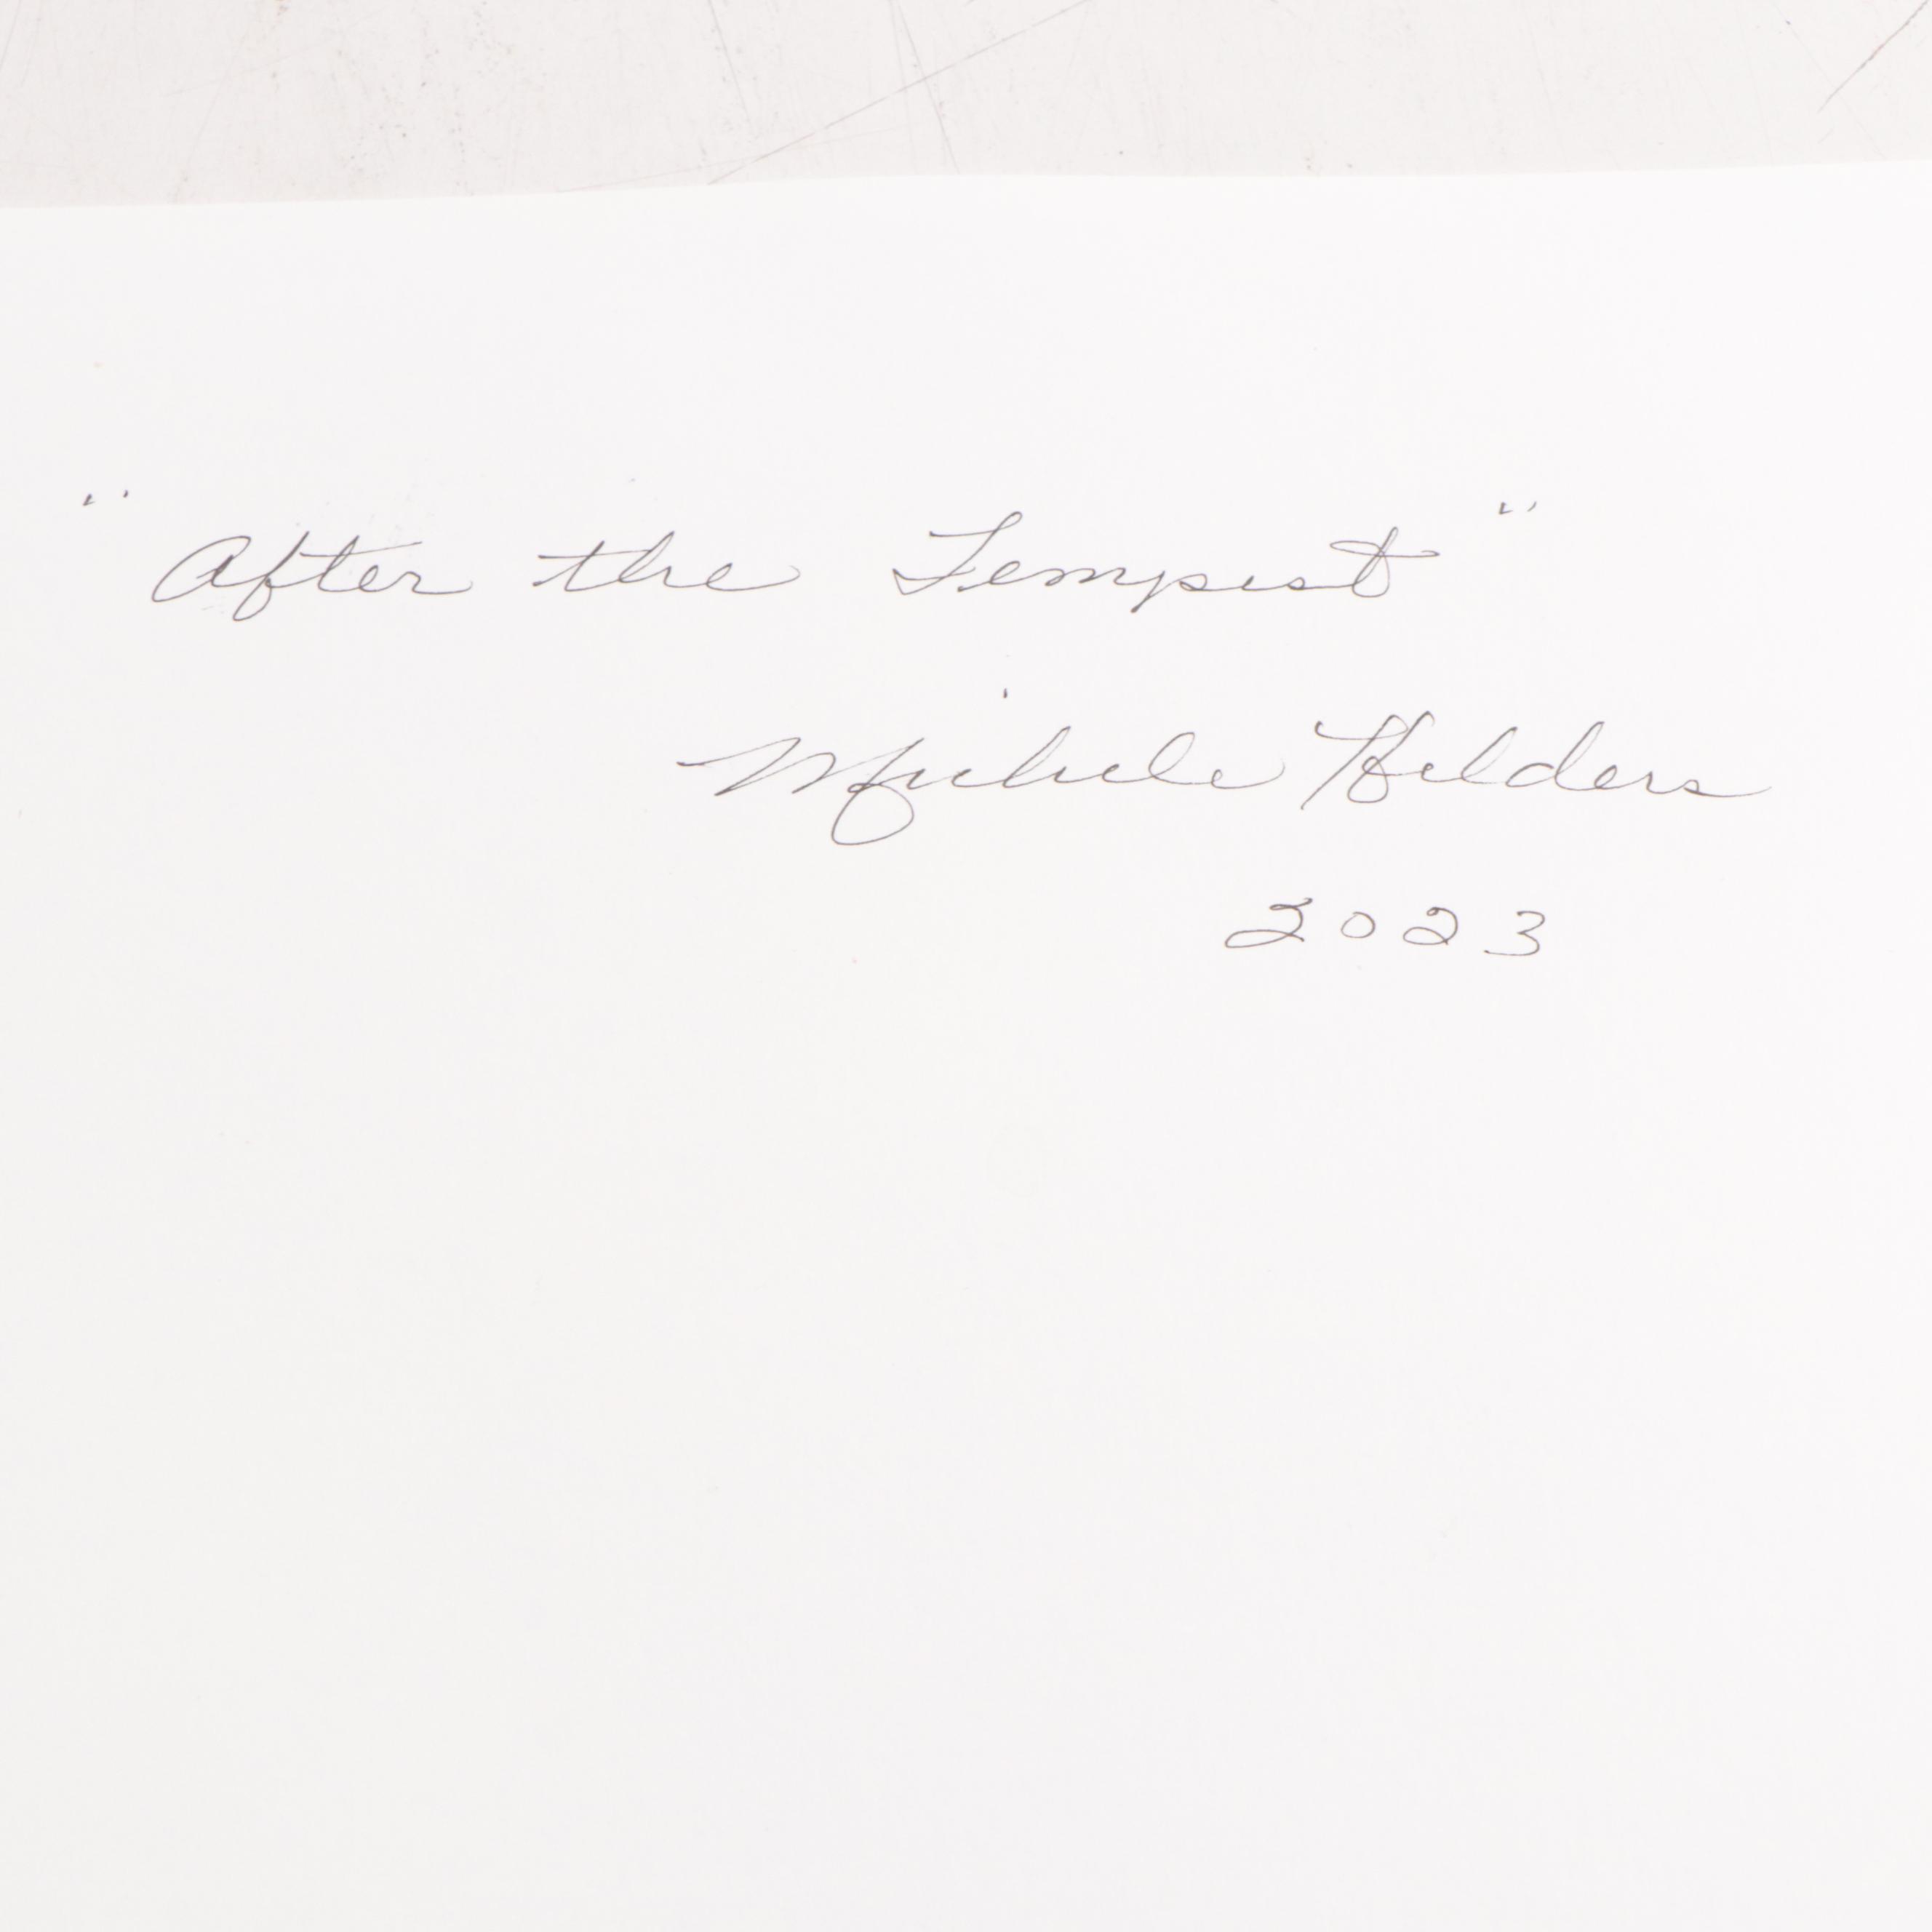 "After the Tempest"
Michele Helders
2023